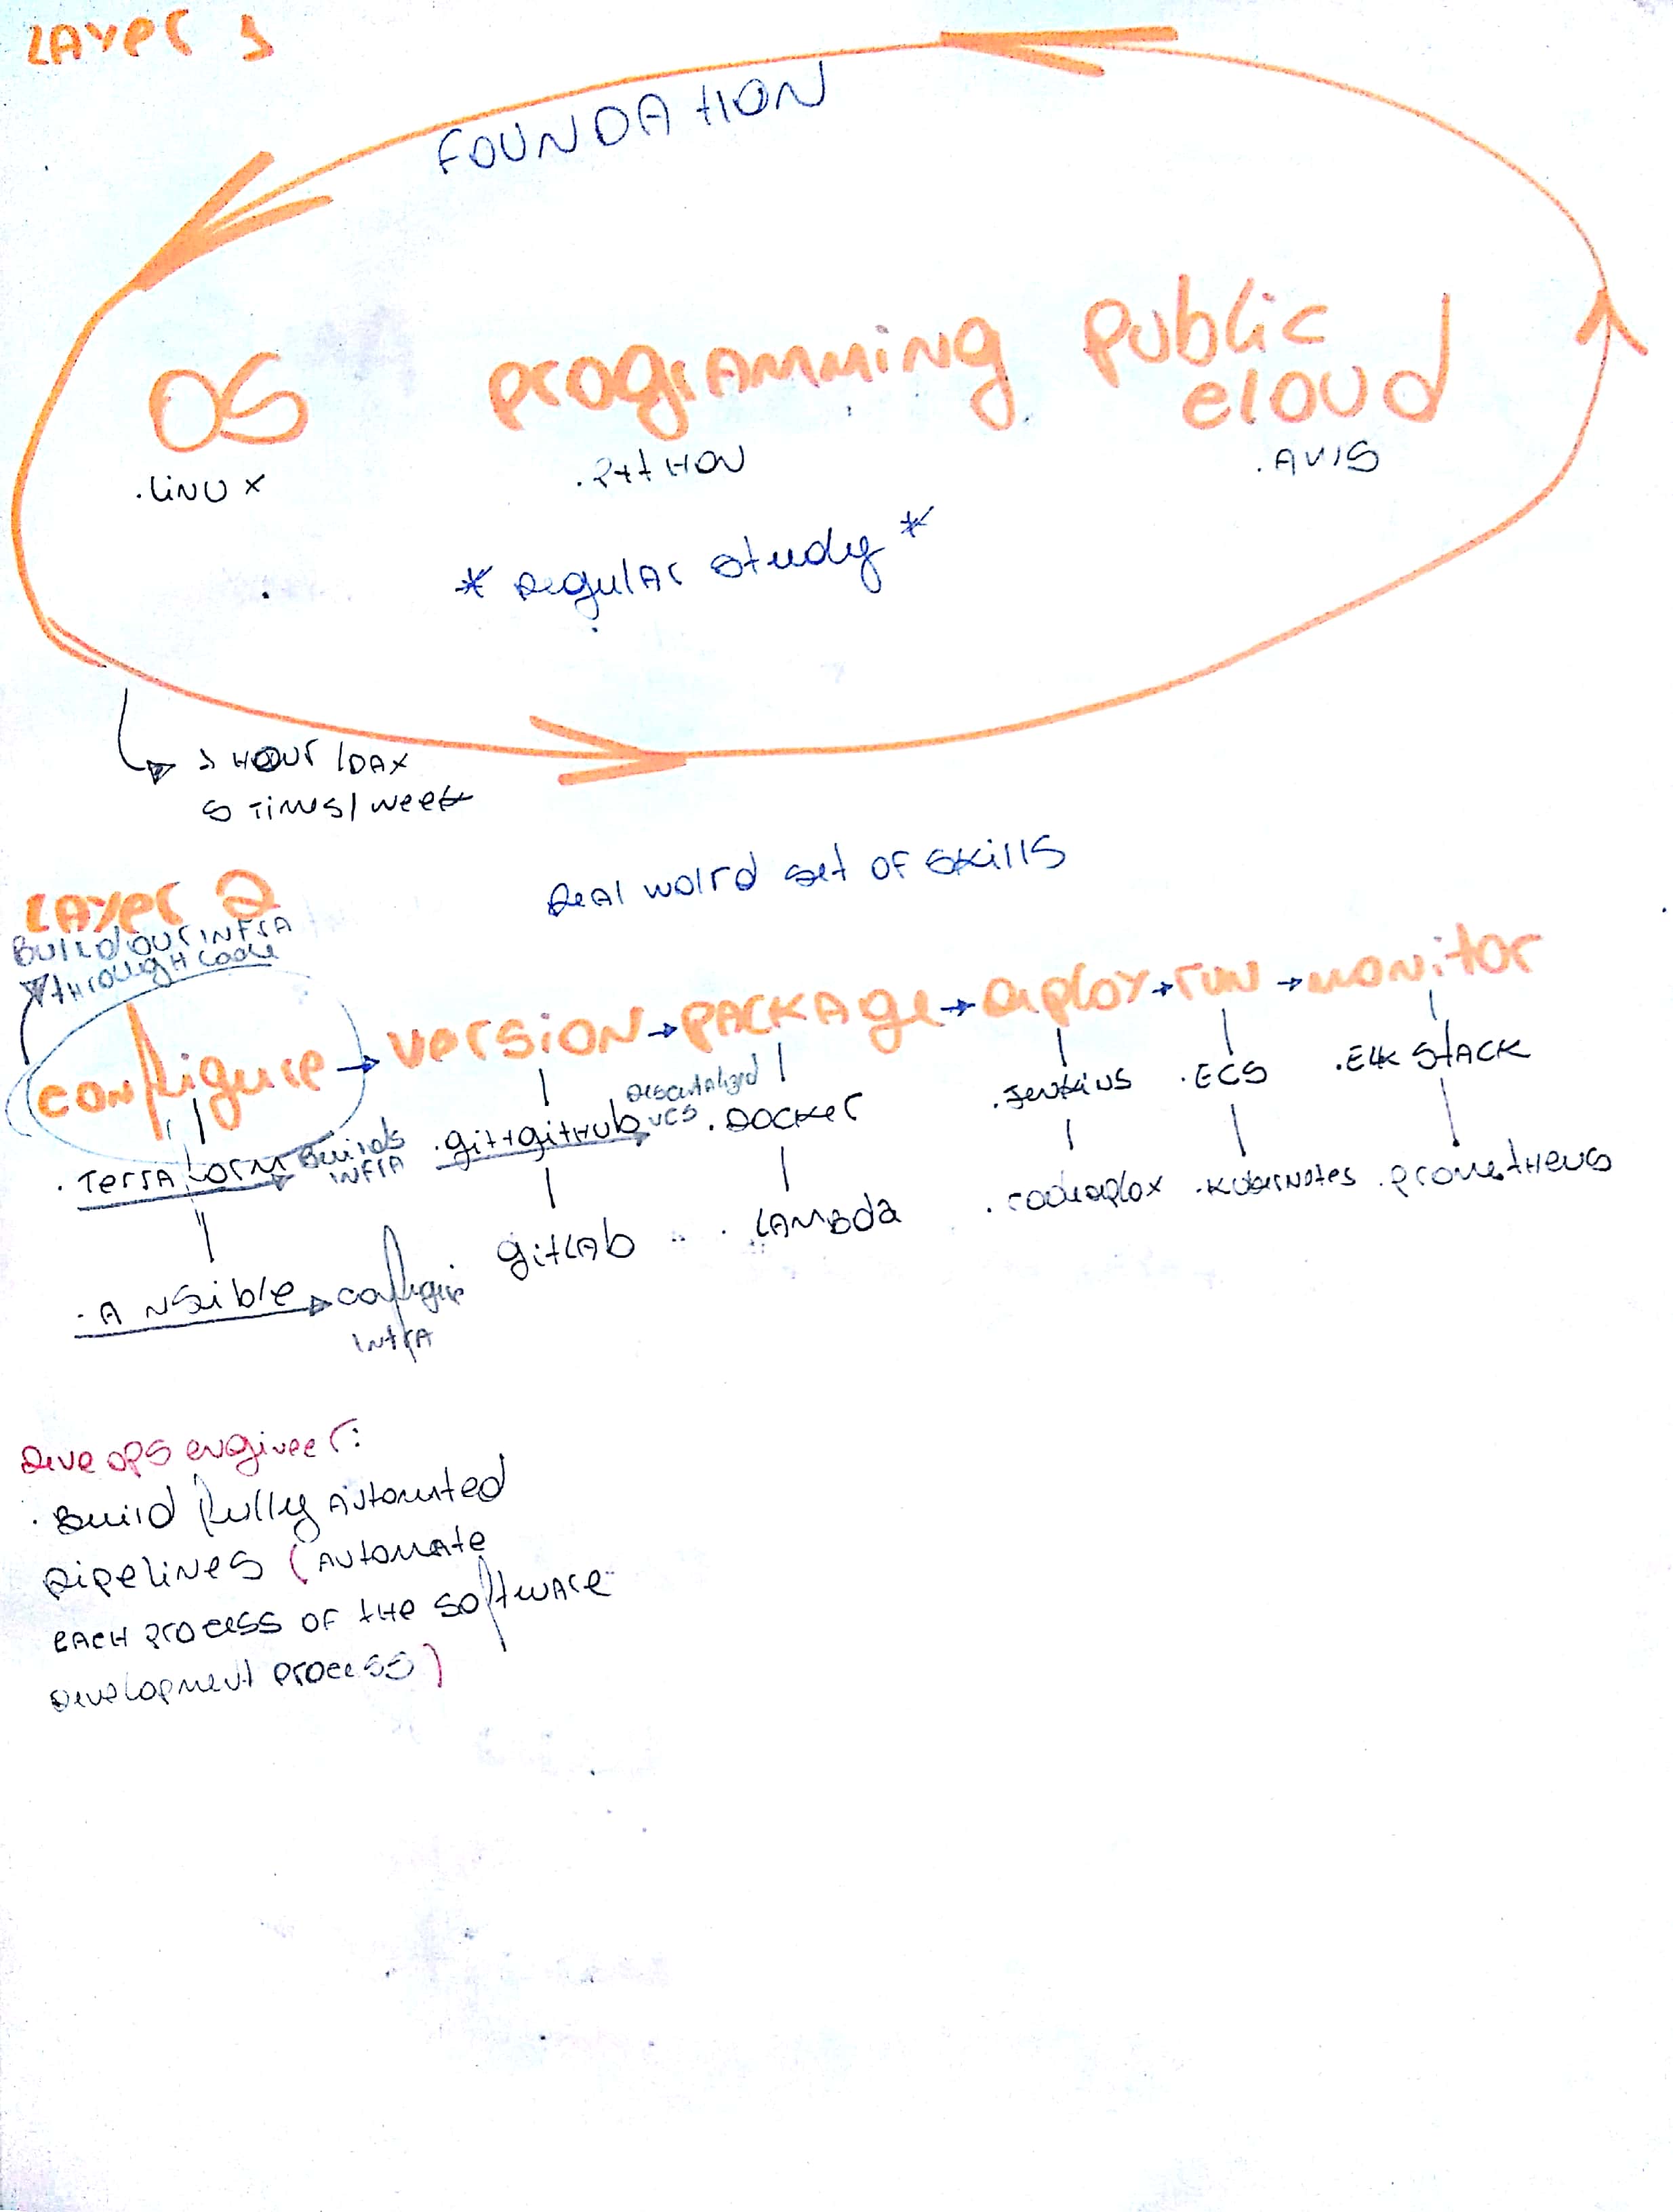 LAYER 1
FOUNDATION
OS programming public
cloud
.LINUX .PYTHON .AWS
* Regular study *
1 HOUR/DAY
5 TIMES/week
Real wolrd set of skills
LAYER 2
BUILD OUR INFRA
THROUGH CODE
configure → version → PACKAGE → Deploy → run → monitor
.Terraform Builds
INFRA
.git+gitHub Descentralized
VCS
.DOCKER
.Jenkins
.ECS
.ELK STACK
.Ansible configure
INFRA
gitLAb
.LAMBDA
.codedeploy
.kubernotes
.prometHeus
Deve OPS engineer:
.Build fully Automated
pipelines (Automate
each process of the software
Development process)